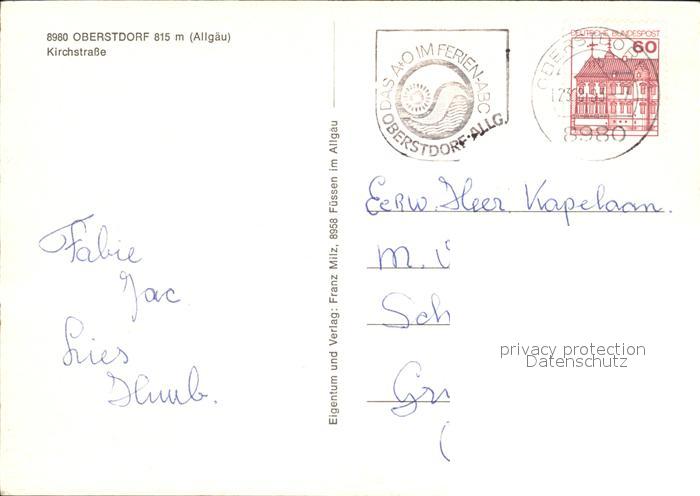 8980 OBERSTDORF 815 m (Allgäu)
Kirchstraße
DAS A+O IM FERIEN-ABC
OBERSTDORF-ALLG.
DEUTSCHE BUNDESPOST
60
OBERSTDORF
8980
Eigentum und Verlag: Franz Milz, 8958 Füssen im Allgäu
Fabie
Jac
Lies
Huub.
EeRW. Heer Kapelaan.
M.
Sch
Gr
privacy protection
Datenschutz